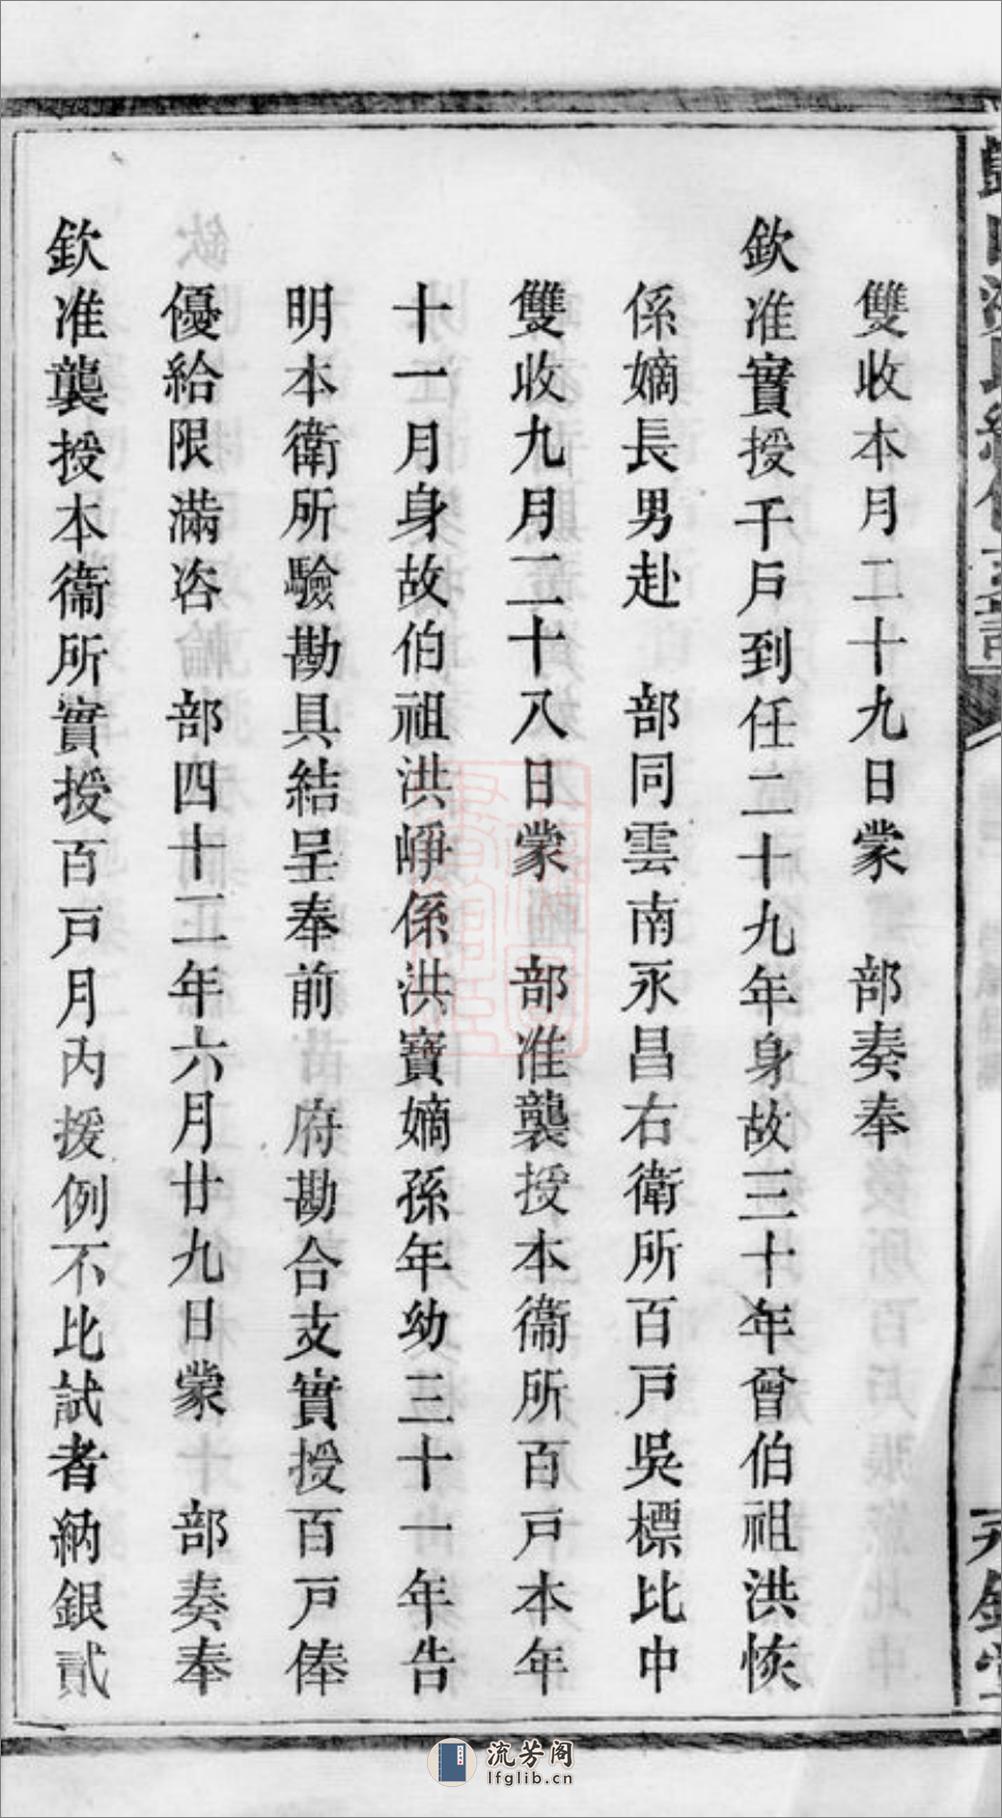 雙收本月二十九日蒙　部奏奉
欽准實授千戶到任二十九年身故三十年曾伯祖洪恢
係嫡長男赴　部同雲南永昌右衛所百戶吳標比中
雙收九月二十八日蒙　部准襲授本衞所百戶本年
十一月身故伯祖洪崢係洪寶嫡孫年幼三十一年告
明本衛所驗勘具結呈奉前　府勘合支實授百戶俸
優給限滿咨　部四十二年六月廿九日蒙　部奏奉
欽准襲授本衞所實授百戶月內援例不比試者納銀貳
流芳阁
lfglib.cn